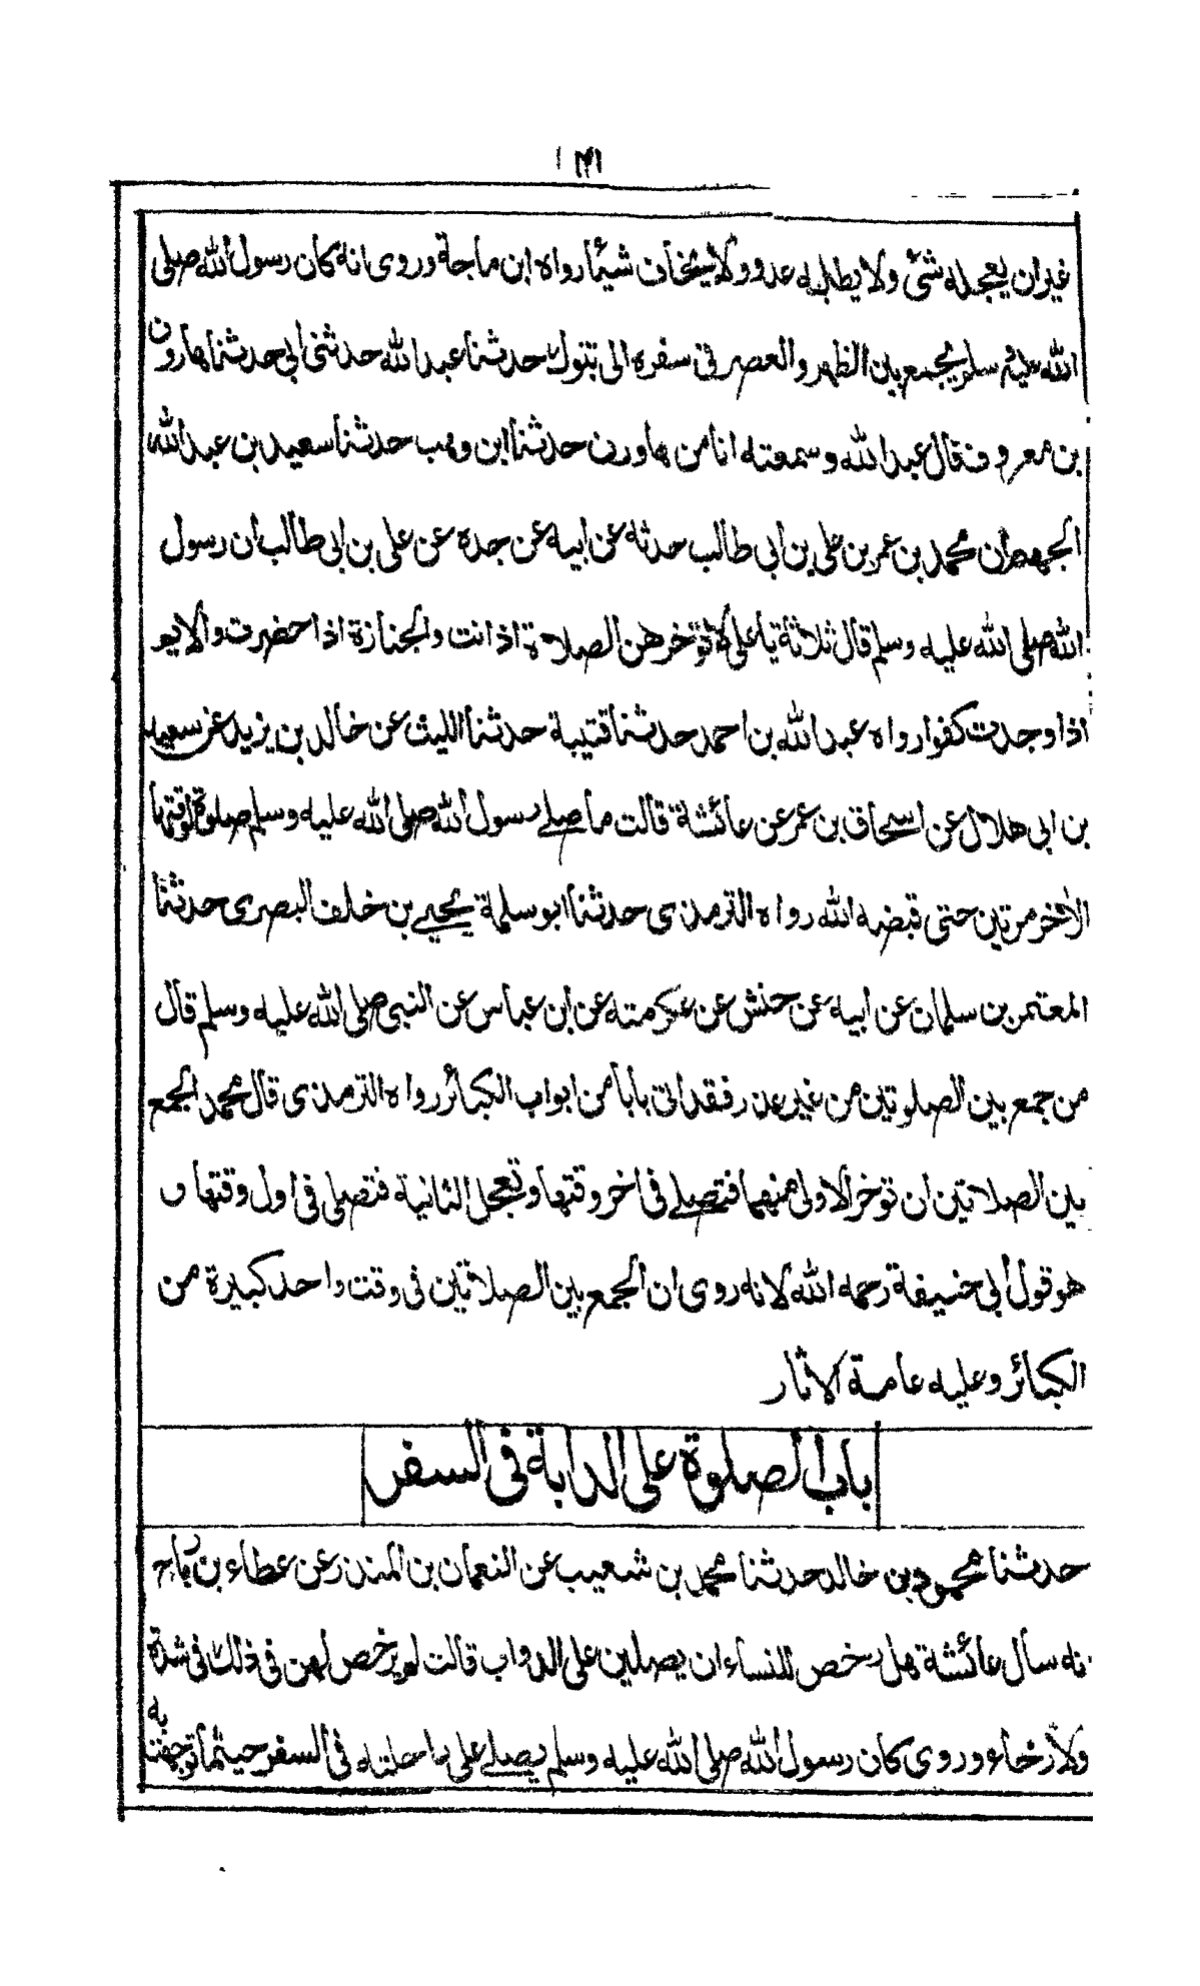 غيران يعجله شئ ولا يطلبه عدو ولا يخاف شيئا رواه ابن ماجة وروى انه كان رسول الله صلى
الله عليه وسلم يجمع بين الظهر والعصر فى سفره الى تبوك حدثنا عبد الله حدثنى ابى حدثنا هارون
بن معروف قال عبد الله وسمعته انا من هاورن حدثنا ابن وهب حدثنا سعيد بن عبد الله
الجهنى ان محمد بن عمر بن على بن ابى طالب حدثه عن ابيه عن جده عن على بن ابى طالب ان رسول
الله صلى الله عليه وسلم قال ثلاثة يا على لا تؤخرهن الصلاة اذا انت والجنازة اذا حضرت والايم
اذا وجدت كفوا رواه عبد الله بن احمد حدثنا قتيبة حدثنا الليث عن خالد بن يزيد عن سعيد
بن ابى هلال عن اسحاق بن عمر عن عائشة قالت ما صلے رسول الله صلى الله عليه وسلم صلوة لوقتها
الاخر مرتين حتى قبضه الله رواه الترمذى حدثنا ابو سلمة يحيے بن خلف البصرى حدثنا
المعتمر بن سلمان عن ابيه عن حنش عن عكرمته عن ابن عباس عن النبى صلى الله عليه وسلم قال
من جمع بين الصلوتين من غير عذر فقد اتى بابا من ابواب الكبائر رواه الترمذى قال محمد الجمع
بين الصلاتين ان توخر الاولى منهما فتصلے فى اخر وقتها وتعجل الثانية فتصلى فى اول وقتها و
هو قول ابى حنيفة رحمه الله لانه روى ان الجمع بين الصلاتين فى وقت واحد كبيرة من
الكبائر وعليه عامة الاثار
باب الصلوة على الدابة فى السفر
حدثنا محمود بن خالد حدثنا محمد بن شعيب عن النعمان بن المنذر عن عطاء بن رباح
نه سأل عائشة هل رخص للنساء ان يصلين على الدواب قالت لم يرخص لهن فى ذلك فى شدة
ولا رخاء وروى كان رسول الله صلى الله عليه وسلم يصلے على راحلته فى السفر حيثما توجهت به